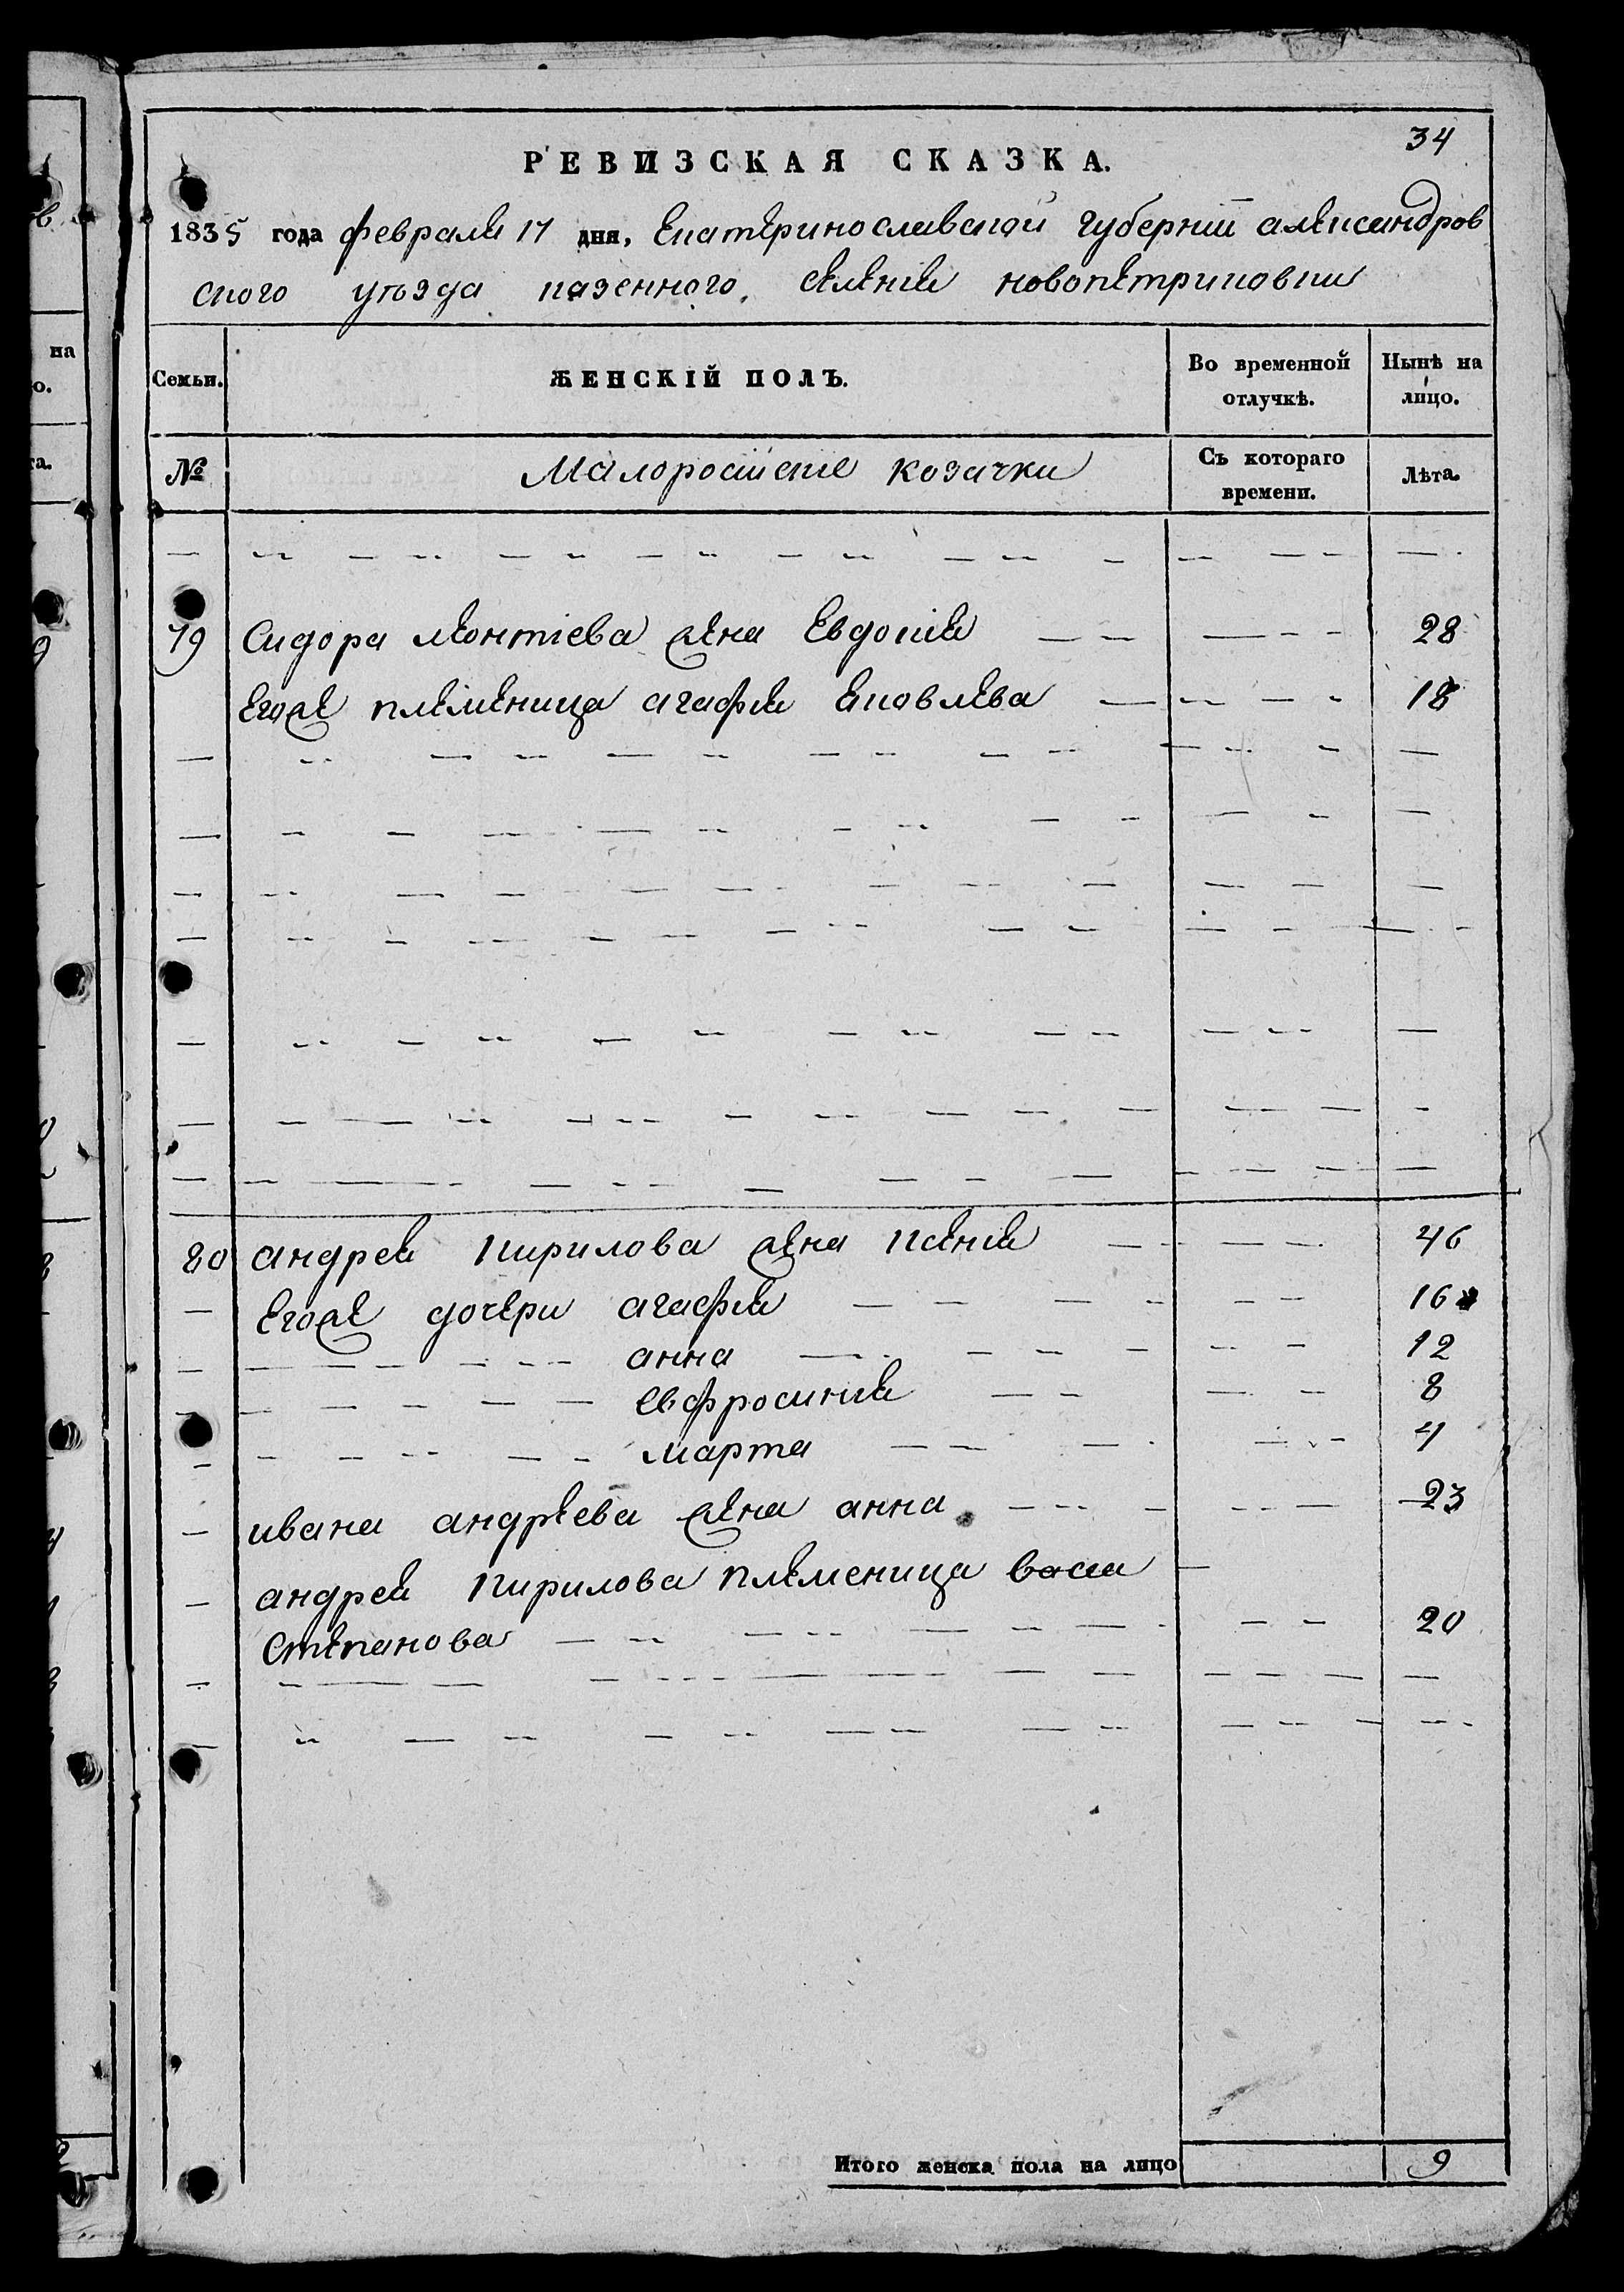 34
РЕВИЗСКАЯ СКАЗКА.
1835 года февраля 17 дня, Екатеринославской губернии александров
ского уъзда казенного селения новопетриковки
Семьи. ЖЕНСКІЙ ПОЛЪ. Во временной отлучкѣ. Нынѣ на лицо.
№ Малоросийские козачки Съ котораго времени. Лѣта.
19 Сидора леонтіева жена Евдокия 28
Егоже племеница агафия яковлева 18
20 андрея кирилова жена ксения 46
Егоже дочери агафия 16
анна 12
евфросиния 8
марта 4
ивана андреева жена анна 23
андрея кирилова племеница васса
Степанова 20
Итого женска пола на лицо 9